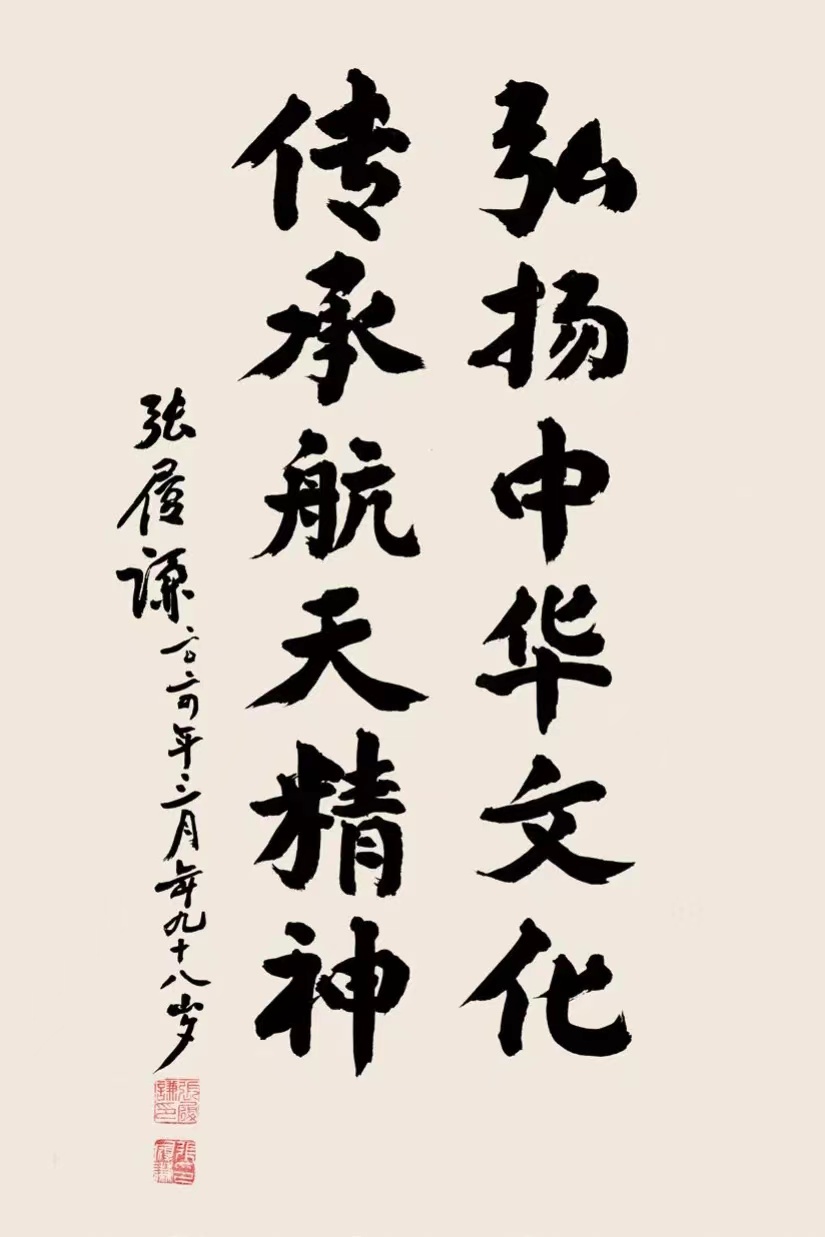 弘扬中华文化
传承航天精神
张履谦二〇二四年三月年九十八岁
張履謙印